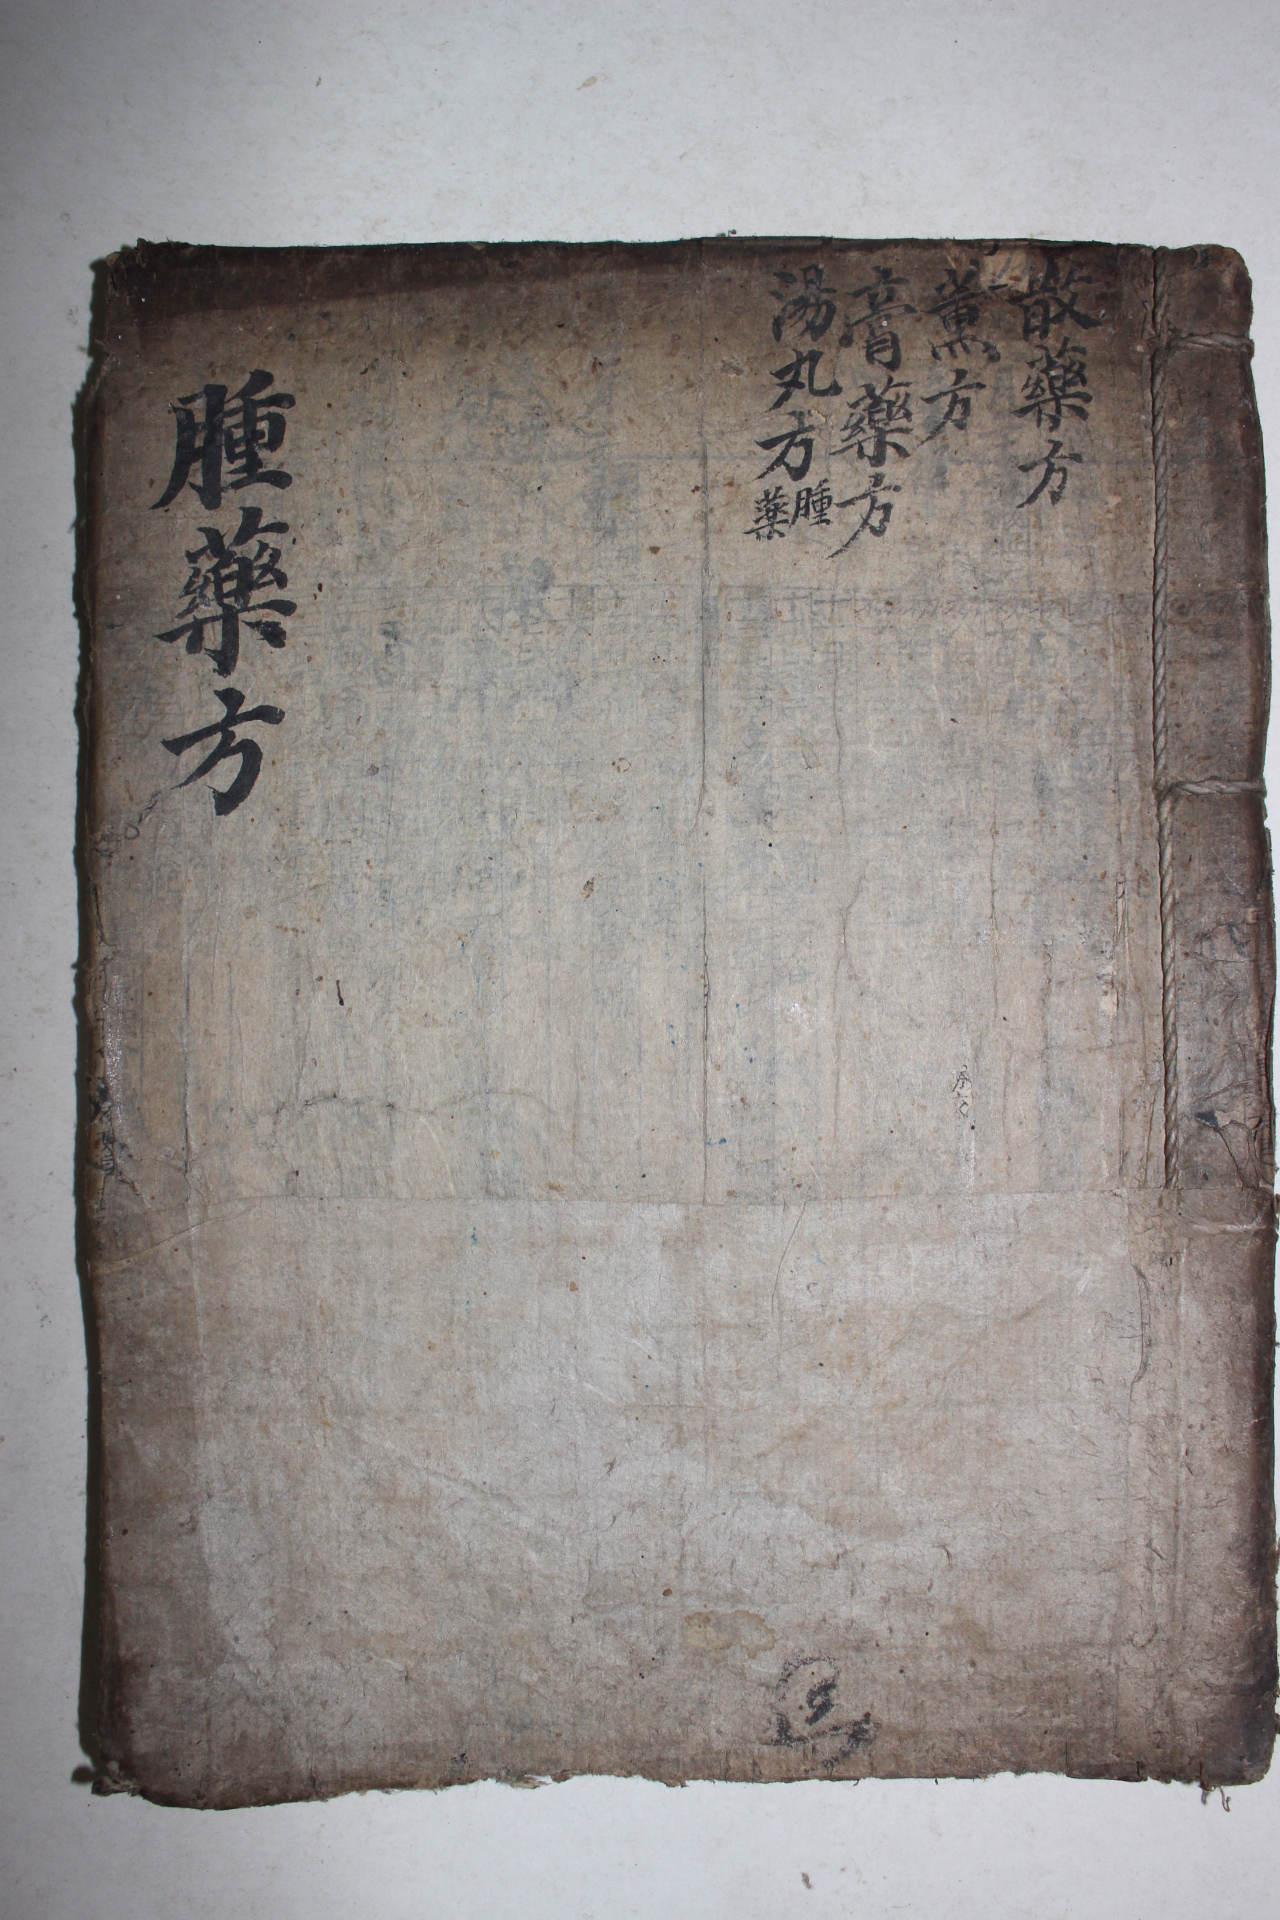 散藥方
薰方
膏藥方
湯丸方
腫
藥
腫藥方